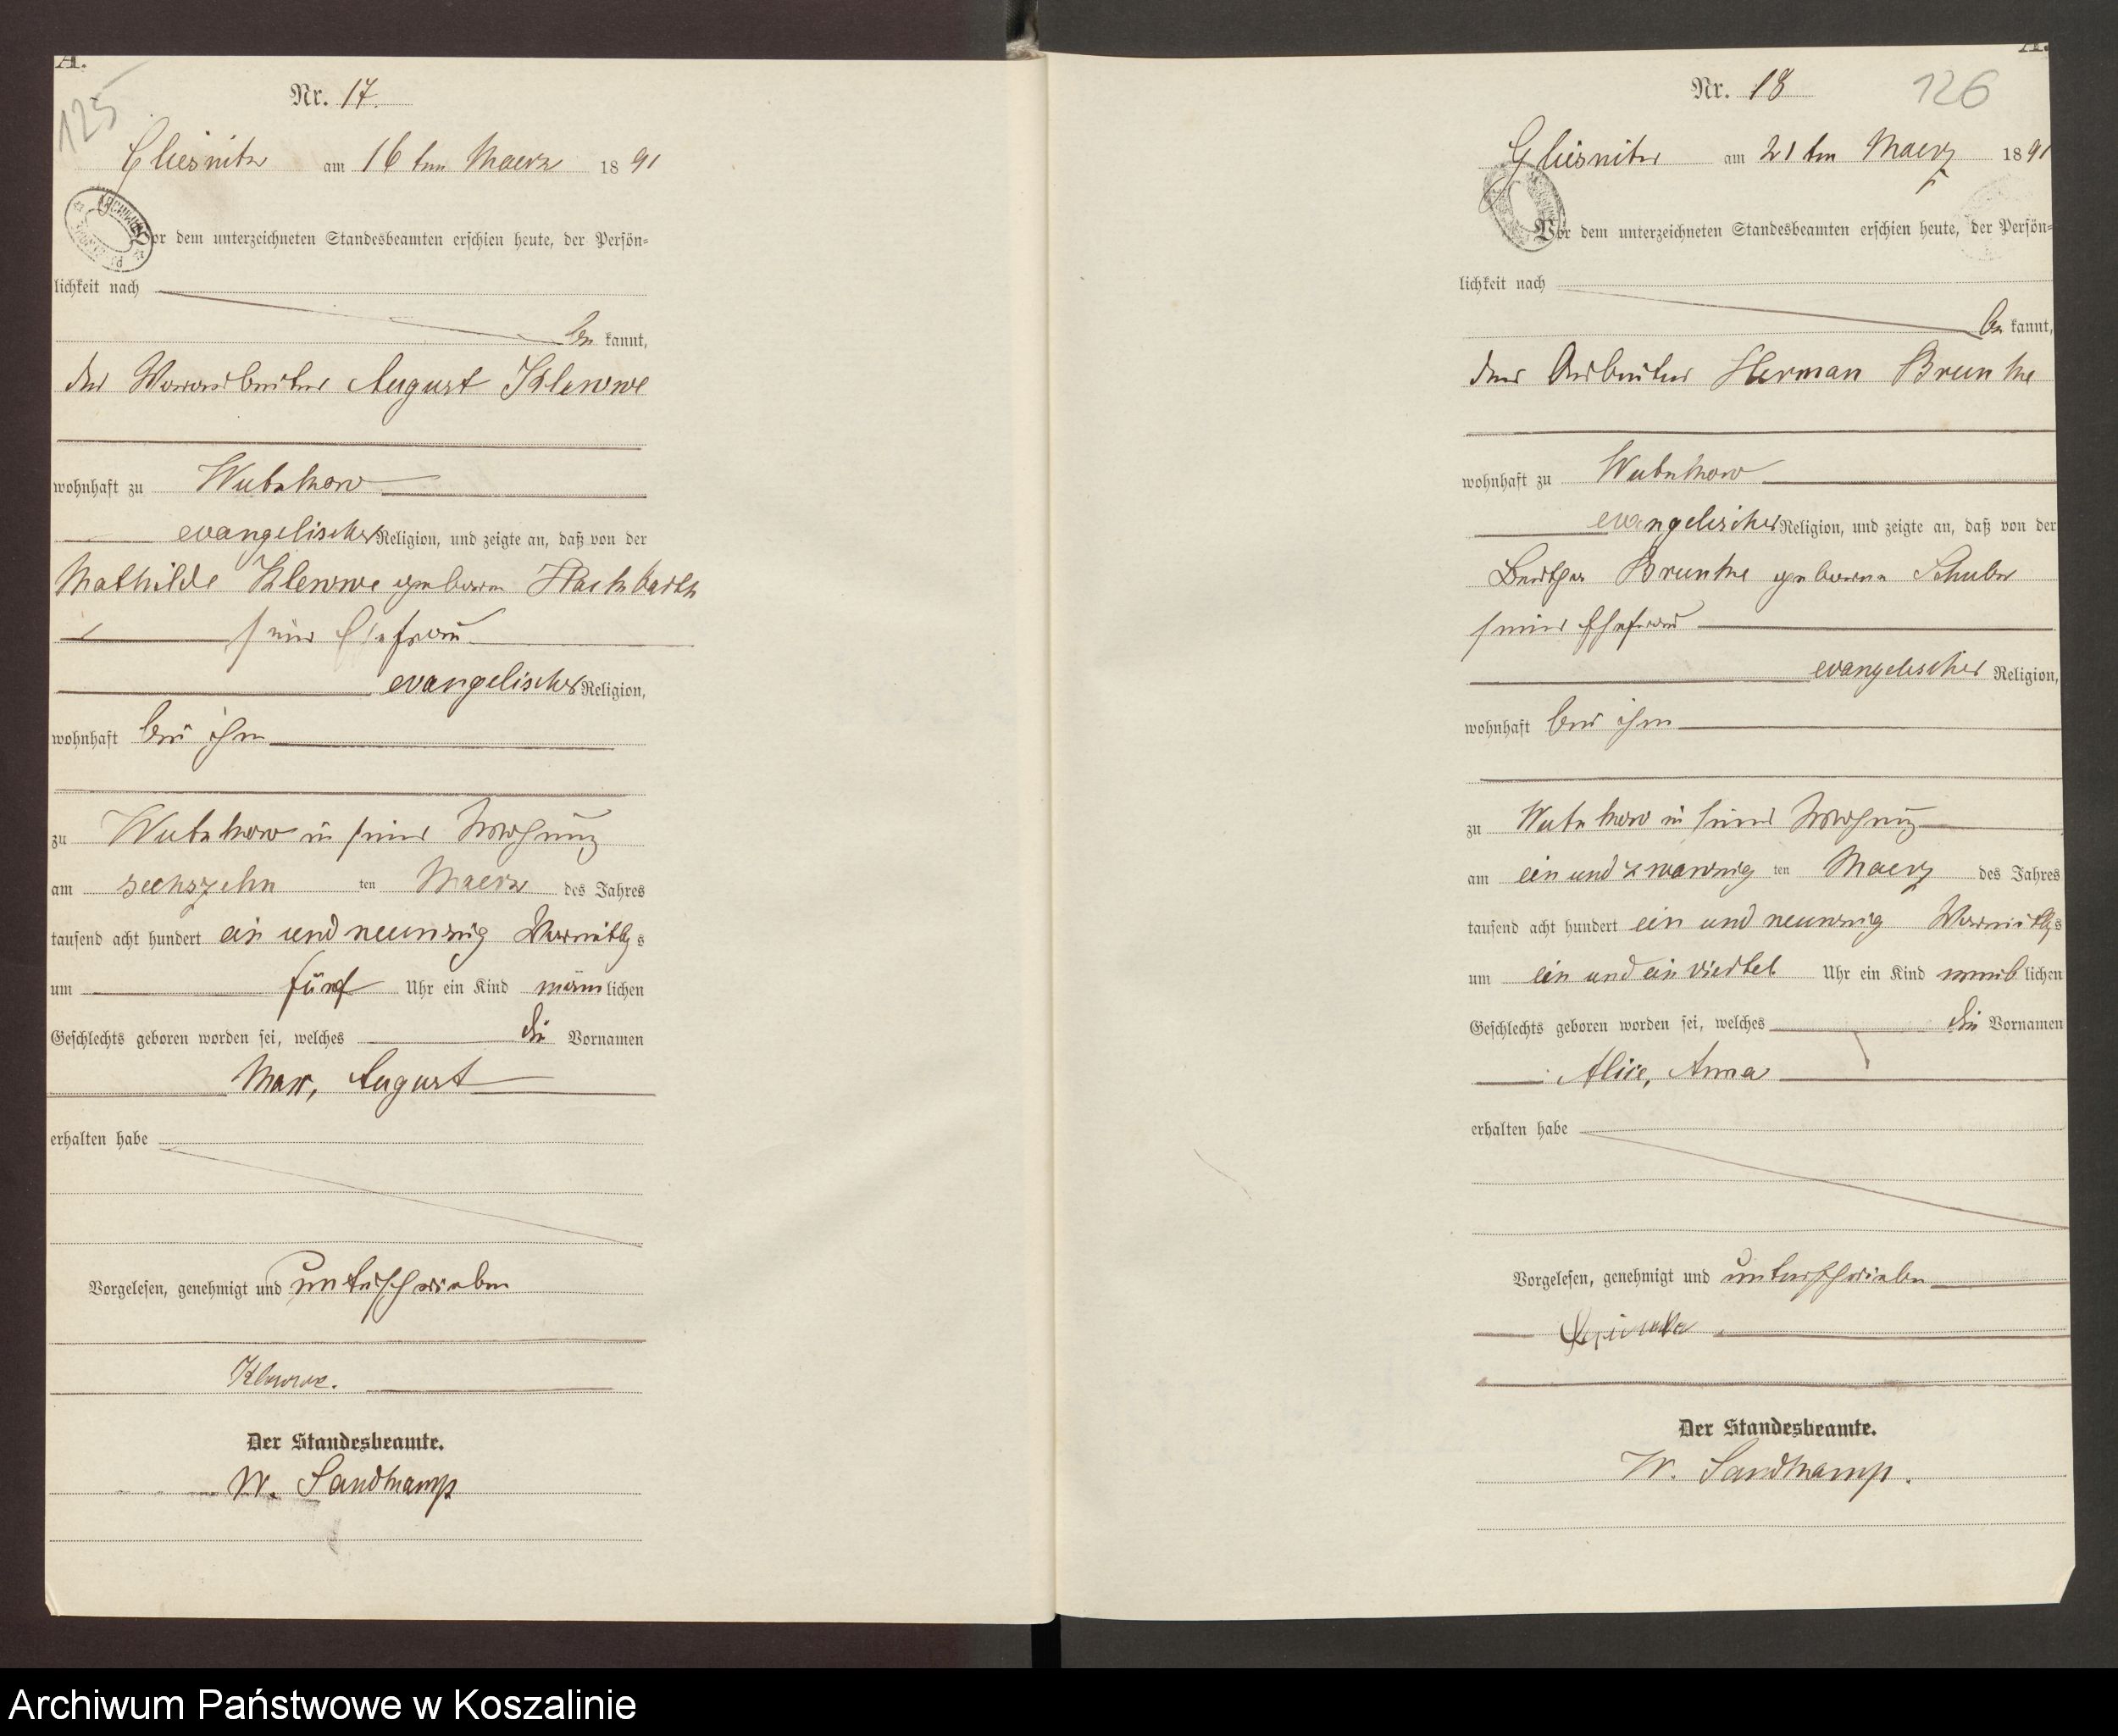 A.
125
Nr. 17.
Gliesnitz am 16ten Maerz 1891
Vor dem unterzeichneten Standesbeamten erschien heute, der Persön-
lichkeit nach
be kannt,
der Vorarbeiter August Klewwe
wohnhaft zu Wutzkow
evangelischer Religion, und zeigte an, daß von der
Mathilde Klewwe geborene Hackbarth
seiner Ehefrau
evangelischer Religion,
wohnhaft bei ihm
zu Wutzkow in seiner Wohnung
am sechszehn ten Maerz des Jahres
tausend acht hundert ein und neunzig Vormittags
um fünf Uhr ein Kind männlichen
Geschlechts geboren worden sei, welches die Vornamen
Max, August
erhalten habe
Vorgelesen, genehmigt und unterschrieben
Klewwe.
Der Standesbeamte.
W. Sandkamp
A.
126
Nr. 18
Gliesnitz am 21ten Maerz 1891
Vor dem unterzeichneten Standesbeamten erschien heute, der Persön-
lichkeit nach
be kannt,
der Arbeiter Herman Brunke
wohnhaft zu Wutzkow
evangelischer Religion, und zeigte an, daß von der
Bertha Brunke geborene
seiner Ehefrau
evangelischer Religion,
wohnhaft bei ihm
zu Wutzkow in seiner Wohnung
am ein und zwanzig ten Maerz des Jahres
tausend acht hundert ein und neunzig Vormittags
um ein und ein viertel Uhr ein Kind weiblichen
Geschlechts geboren worden sei, welches die Vornamen
Alice, Anna
erhalten habe
Vorgelesen, genehmigt und unterschrieben
Der Standesbeamte.
W. Sandkamp.
Archiwum Państwowe w Koszalinie